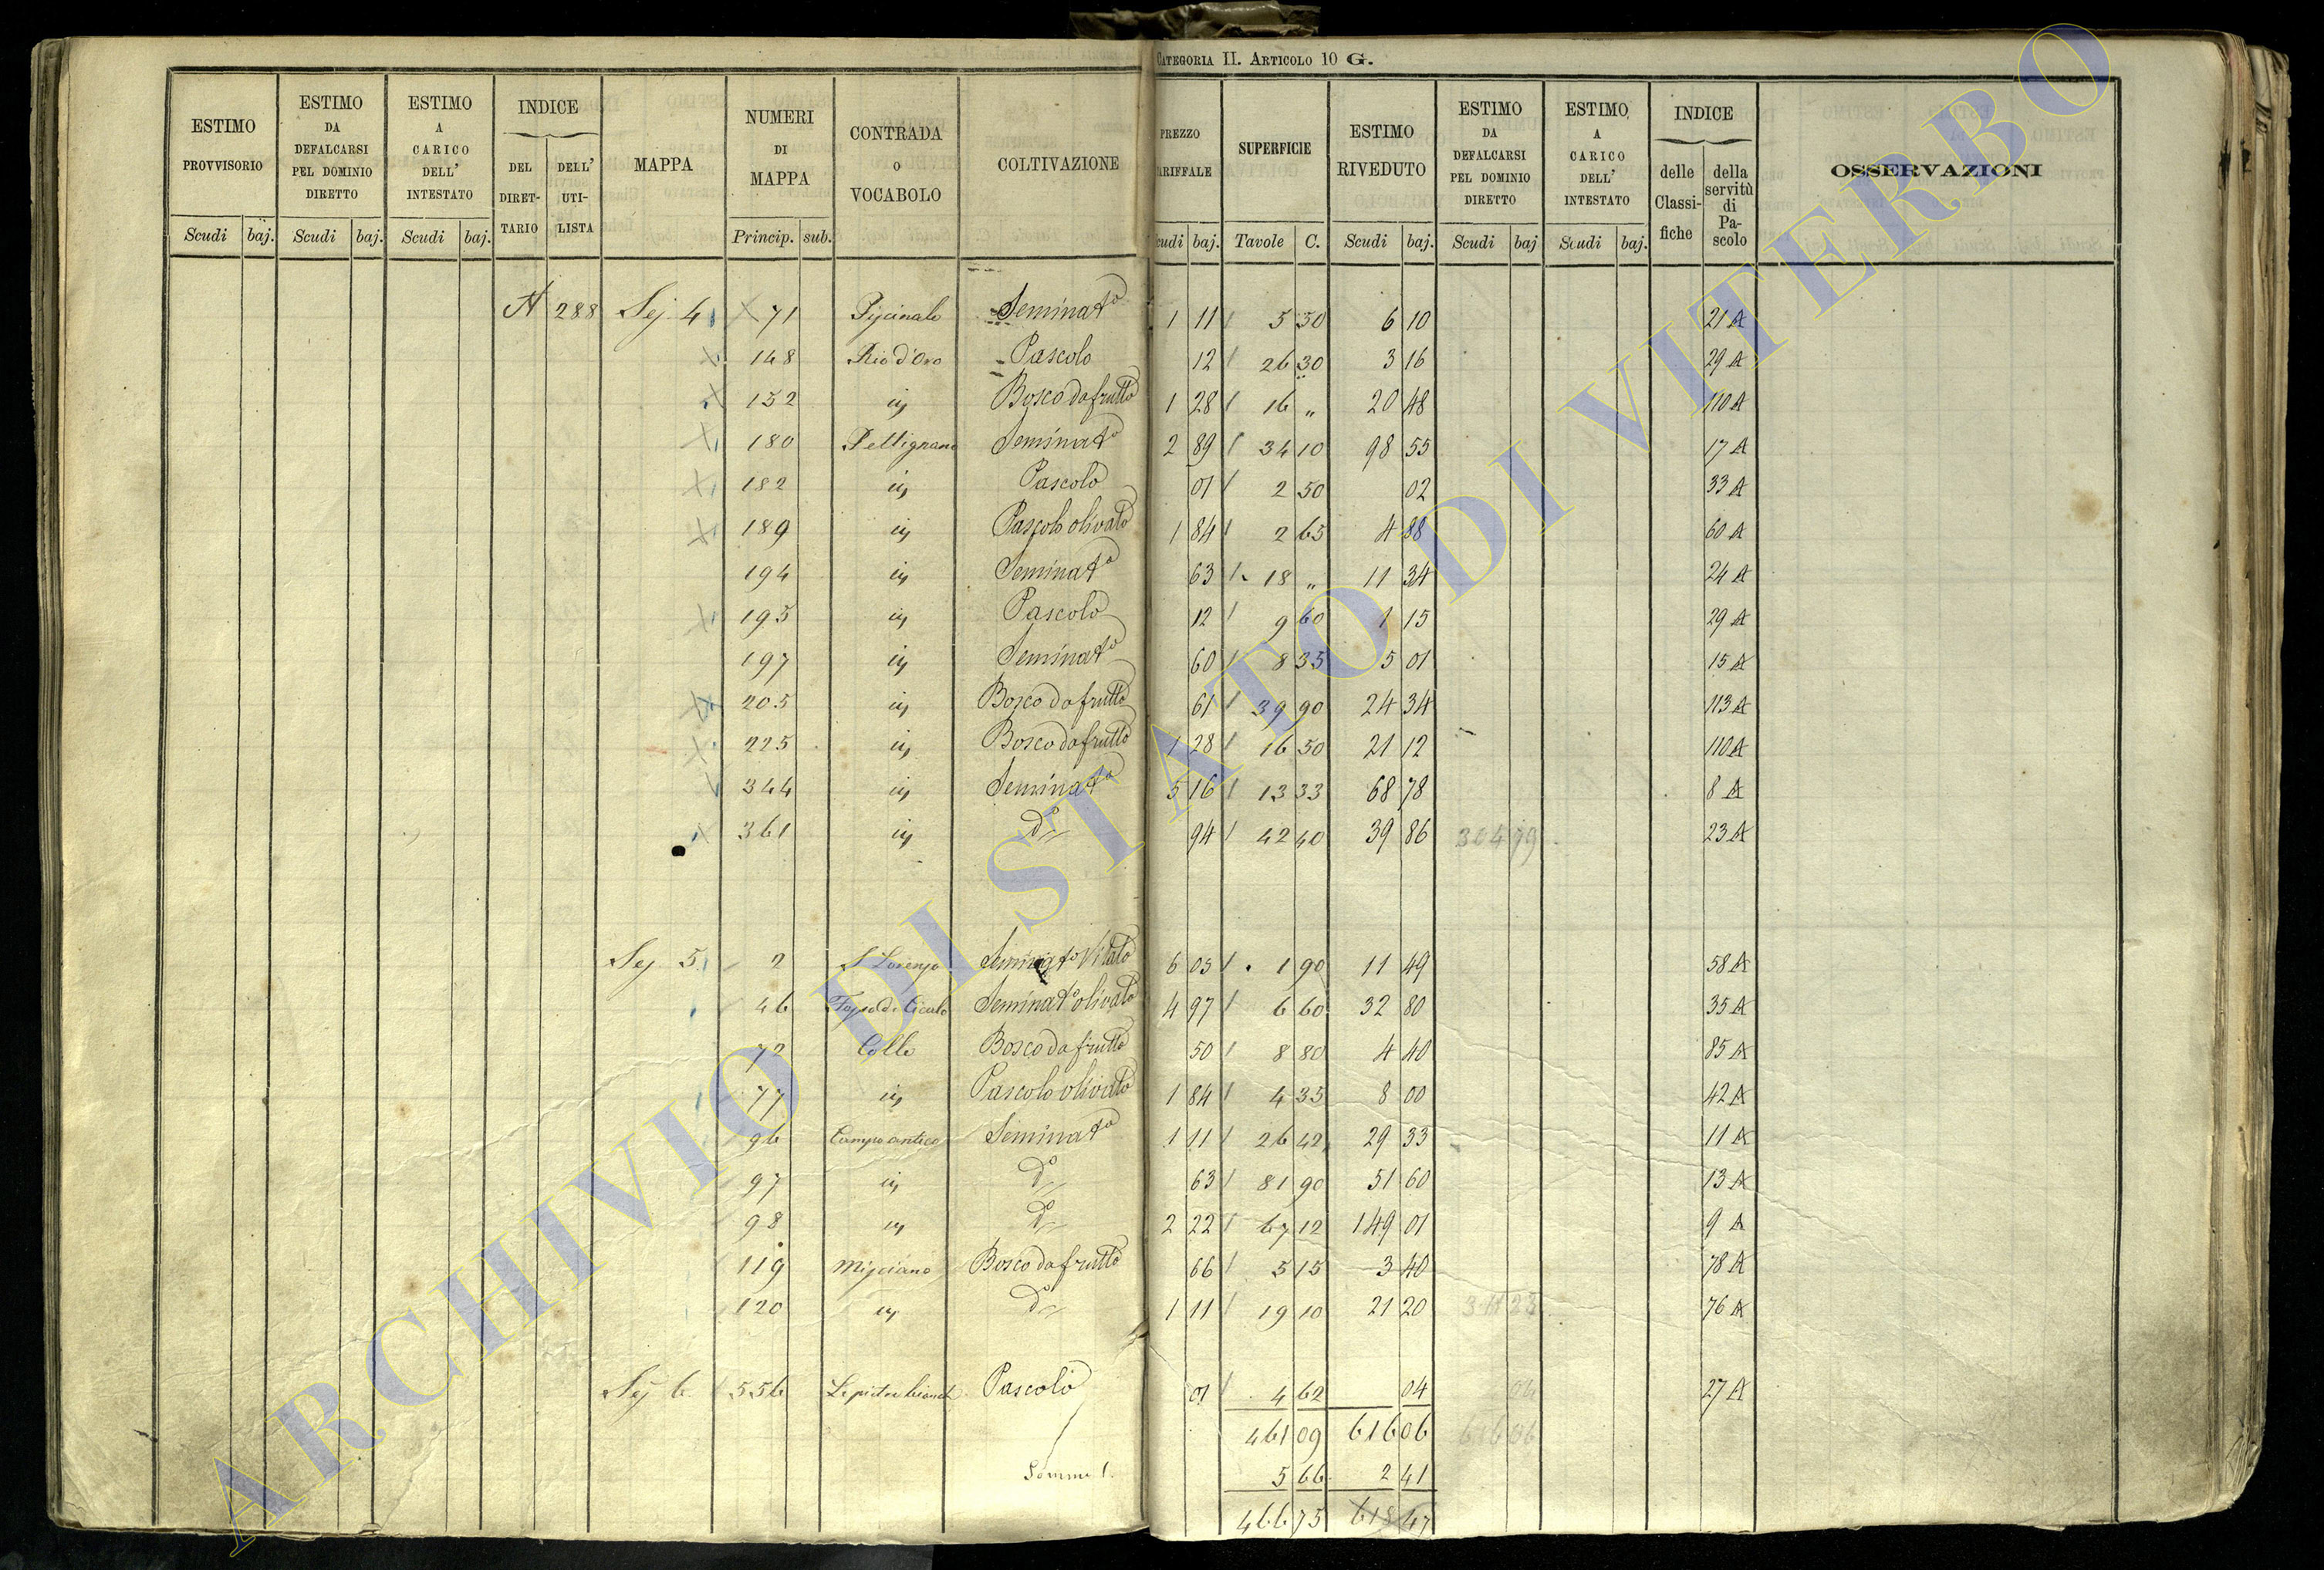 CATEGORIA II. ARTICOLO 10 G.
ESTIMO PROVVISORIO | ESTIMO DA DEFALCARSI PEL DOMINIO DIRETTO | ESTIMO A CARICO DELL' INTESTATO | INDICE DEL DIRET-TARIO | DELL' UTI-LISTA | MAPPA | NUMERI DI MAPPA | CONTRADA O VOCABOLO | COLTIVAZIONE | PREZZO TARIFFALE | SUPERFICIE | ESTIMO RIVEDUTO | ESTIMO DA DEFALCARSI PEL DOMINIO DIRETTO | ESTIMO A CARICO DELL' INTESTATO | INDICE delle Classi-fiche | della servitù di Pa-scolo | OSSERVAZIONI
Scudi baj. | Scudi baj. | Scudi baj. | Princip. sub. | Scudi baj. | Tavole C. | Scudi baj. | Scudi baj | Scudi baj.
A 288 Sez. 4 71 Seminato 1 11 5 50 6 10 21 A
148 Rio d'Oro Pascolo 12 26 30 3 16 29 A
152 Bosco da frutto 1 28 16 „ 20 48 110 A
180 Pettignano Seminato 2 89 34 10 98 55 17 A
182 Pascolo 01 2 50 02 33 A
189 Pascolo olivato 1 84 2 65 4 88 60 A
194 Seminato 63 18 „ 11 34 24 A
195 Pascolo 12 9 60 1 15 29 A
197 Seminato 60 8 35 5 01 15 A
205 Bosco da frutto 61 39 90 24 34 113 A
225 Bosco da frutto 1 28 16 50 21 12 110 A
344 Seminato 5 16 13 33 68 78 8 A
361 do 94 42 40 39 86 304 99 23 A
Sez. 5 2 S Lorenzo Seminato Vitato 6 05 1 90 11 49 58 A
46 Seminato olivato 4 97 6 60 32 80 35 A
72 Colle Bosco da frutto 50 8 80 4 40 85 A
77 Pascolo olivato 1 84 4 35 8 00 42 A
96 Campo antico Seminato 1 11 26 42 29 33 11 A
97 do 63 81 90 51 60 13 A
98 do 2 22 67 12 149 01 9 A
119 Bosco da frutto 66 5 15 3 40 78 A
120 do 1 11 19 10 21 20 311 23 76 A
Sez. 6 556 Pascolo 01 4 62 04 04 27 A
461 09 616 06 616 06
5 66 2 41
466 75 618 47
ARCHIVIO DI STATO DI VITERBO